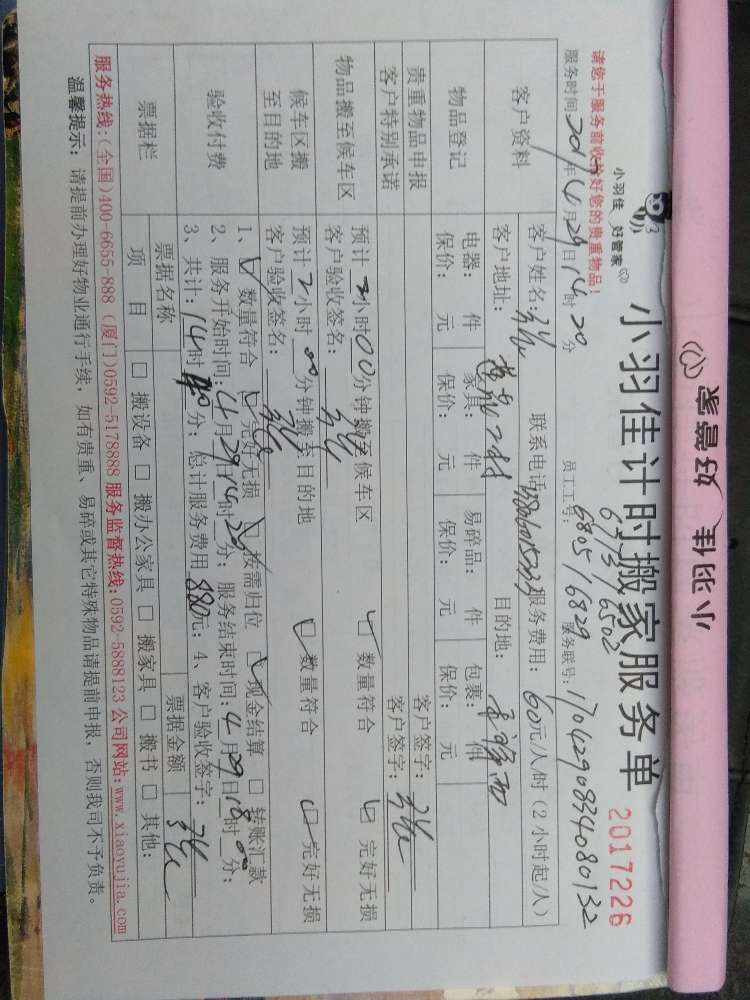 小羽佳 好管家
小羽佳 好管家
小羽佳计时搬家服务单
2017226
请您于服务前收拾好您的贵重物品！
6805/6829
服务时间 2017年4月29日14时20分 员工工号： 服务联号：1704290834080132
客户资料
客户姓名： 联系电话 服务费用：60元/人/时（2小时起/人）
客户地址： 目的地：
物品登记
电器： 件 家具： 件 易碎品： 件 包裹： 件
保价： 元 保价： 元 保价： 元 保价： 元
贵重物品申报 客户签字：
客户特别承诺 客户签字：
物品搬至候车区
预计2小时00分钟搬至候车区 数量符合 完好无损
客户验收签名：
候车区搬至目的地
预计2小时00分钟搬至目的地 数量符合 完好无损
客户验收签名：
验收付费
1、 数量符合 完好无损 按需归位 现金结算 转账汇款
2、服务开始时间：4月29日14时20分；服务结束时间：4月29日18时00分；
3、共计：14时 分；总计服务费用880元；4、客户验收签字：
票据栏
票据名称 票据金额
项目 搬设备 搬办公家具 搬家具 搬书 其他：
服务热线：(全国)400-6655-888 (厦门)0592-5178888 服务监督热线：0592-5888123 公司网站：www.xiaoyujia.com
温馨提示：请提前办理好物业通行手续，如有贵重、易碎或其它特殊物品请提前申报，否则我司不予负责。